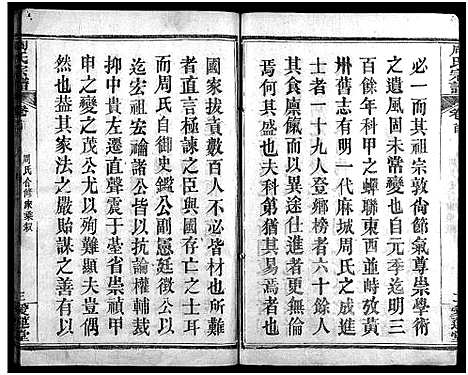 周氏宗譜
卷首
二 愛蓮堂
必一而其祖宗敦尙節氣尊崇學術
之遺風固未常變也自元季迄明三
百餘年科甲之蟬聯東西並峙黃
州舊志有明一代麻城周氏之成進
士者一十九人登鄉榜者六十餘人
其食廩餼而以異途仕進者更無
焉何其盛歟科第猶其易焉者也
國家拔貢數百人不必皆材
者直言極諫之臣與國存亡之士耳
而周氏自御史鑑公副憲廷徵公以
迄宏祖宏禴諸公皆以抗論權輔裁
抑中貴左遷直聲震于臺省崇禎甲
申之變之茂公尤以難顯夫豈偶
然也哉其家法之嚴貽謀之善有
周氏宗譜
卷首
周氏合修家乘敘
三 愛蓮堂